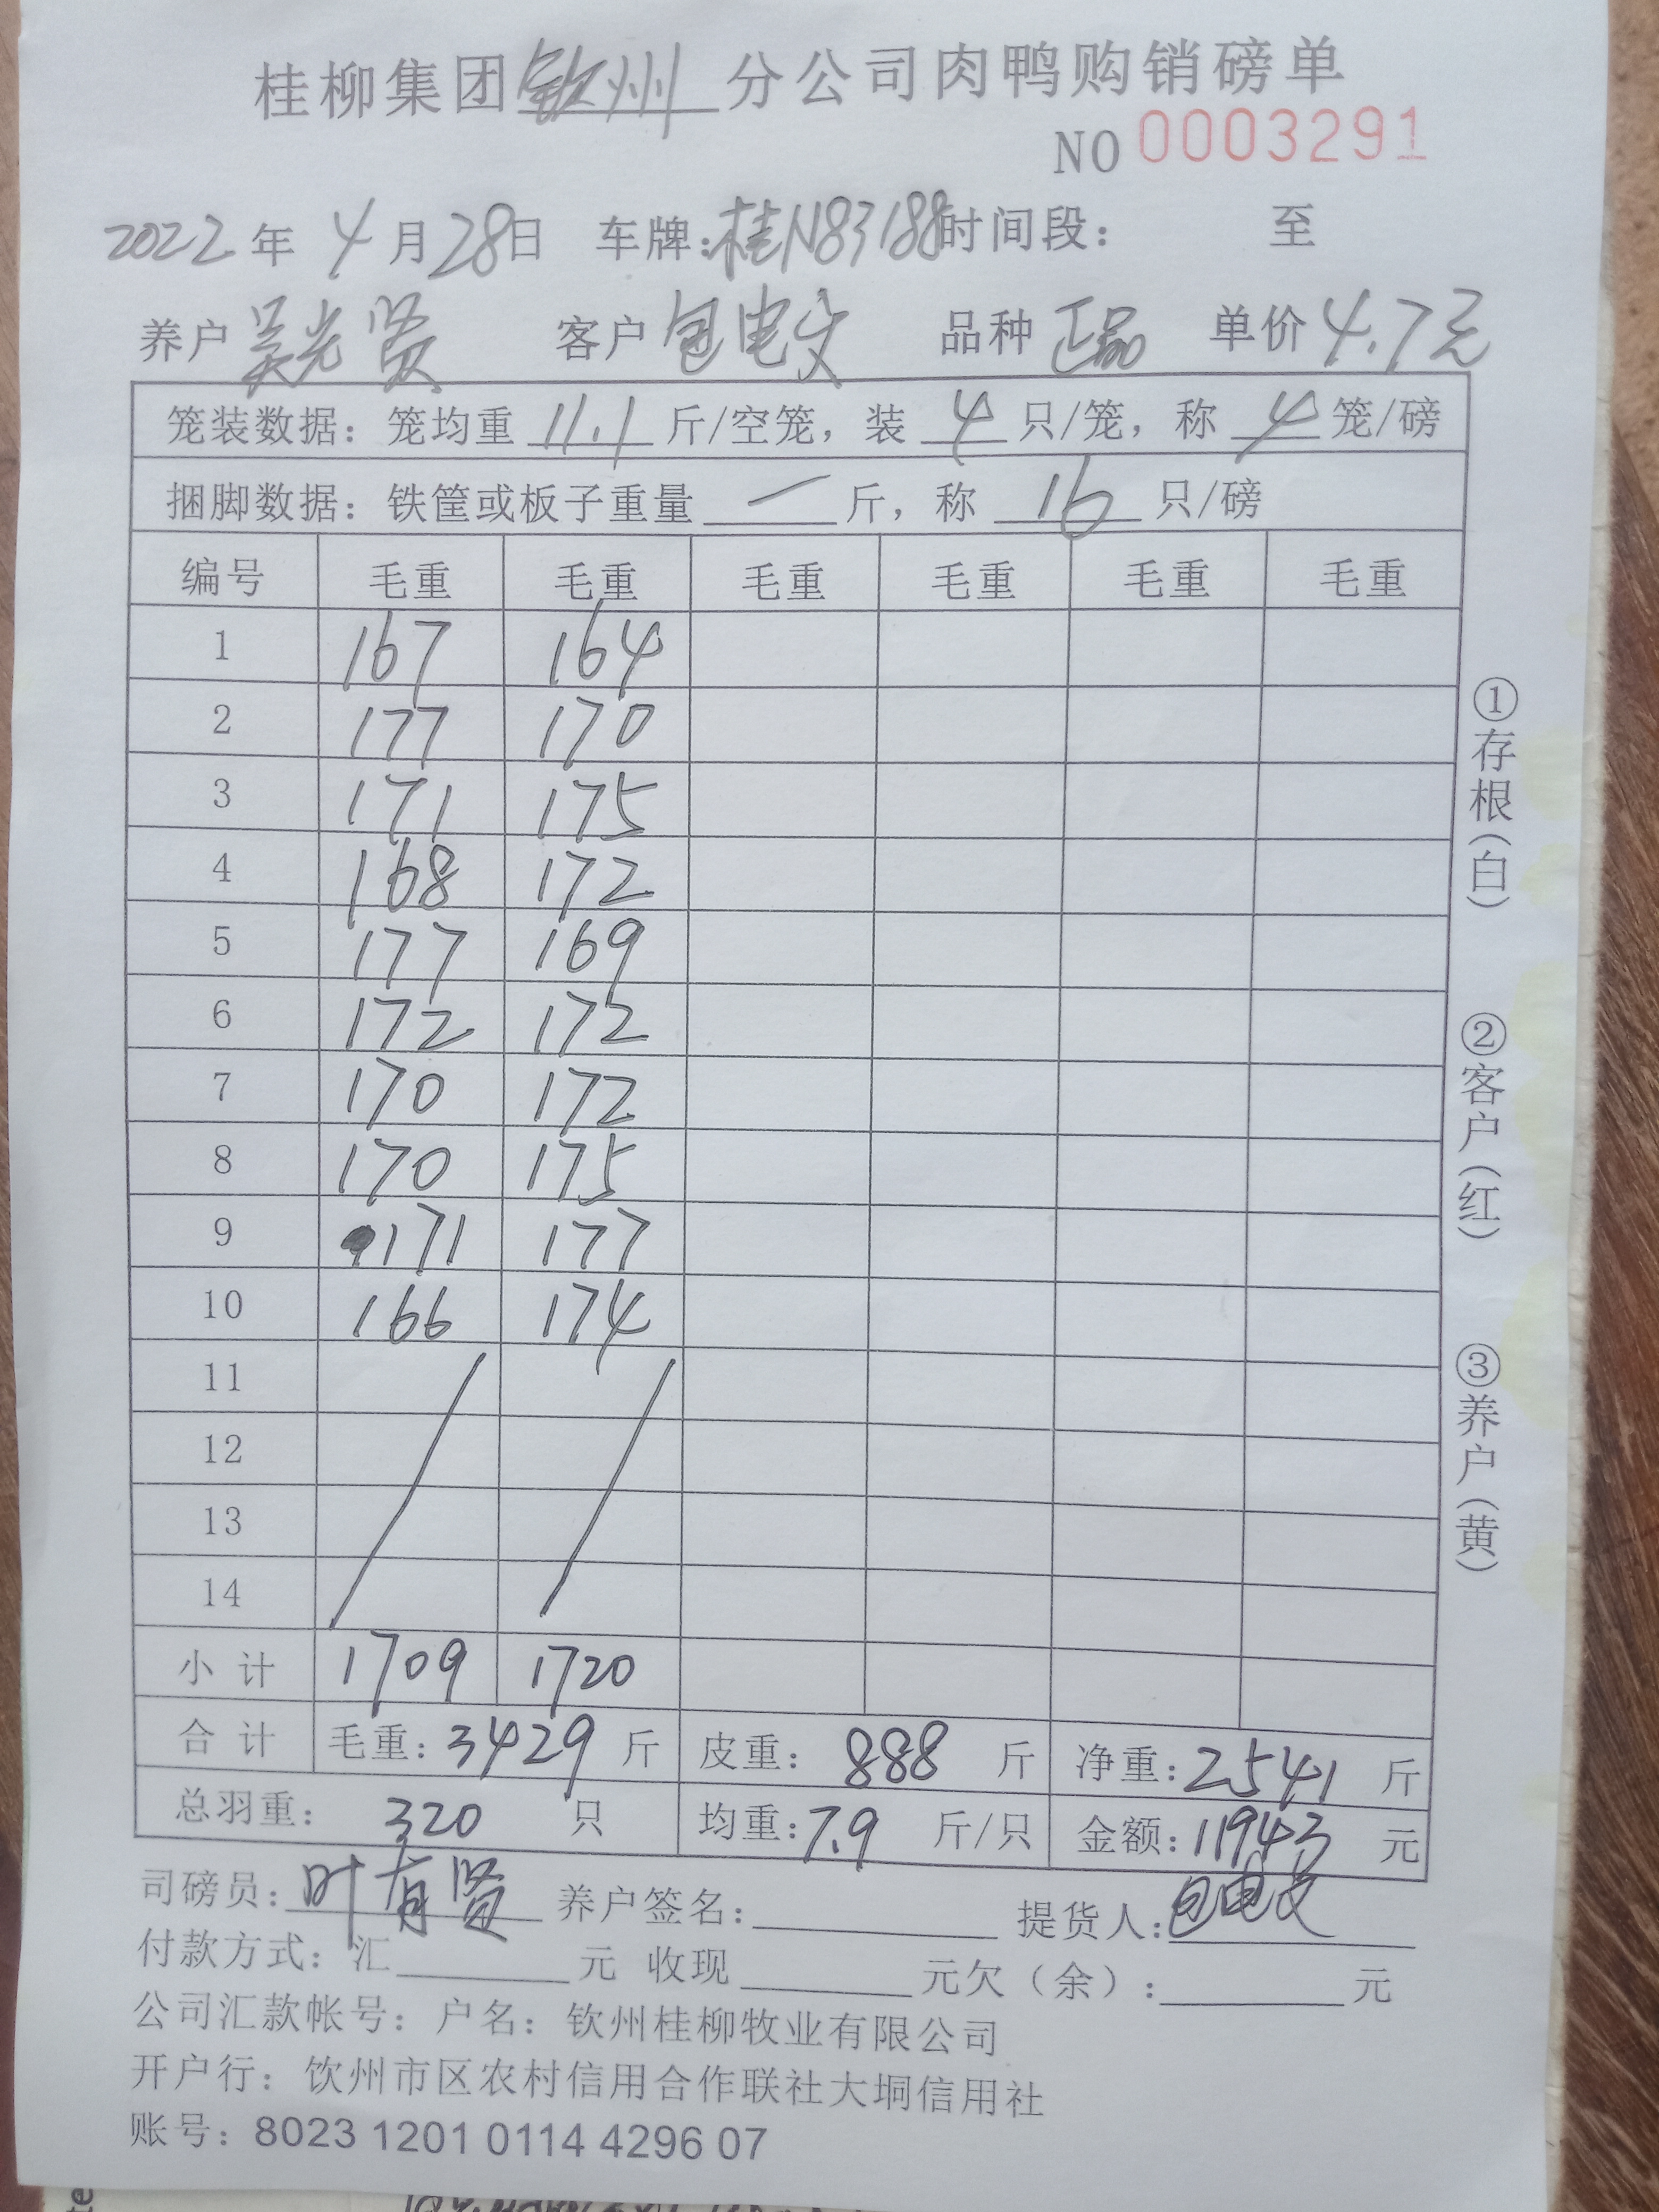 桂柳集团钦州分公司肉鸭购销磅单
NO 0003291
2022年 4月28日 车牌:桂N83188时间段: 至
养户 吴光贤 客户 包电文 品种 正品 单价 4.7元
笼装数据: 笼均重 11.1 斤/空笼, 装 4 只/笼, 称 4 笼/磅
捆脚数据: 铁筐或板子重量 一 斤, 称 16 只/磅
编号 毛重 毛重 毛重 毛重 毛重 毛重
1 167 164
2 177 170
3 171 175
4 168 172
5 177 169
6 172 172
7 170 172
8 170 175
9 171 177
10 166 174
11
12
13
14
小 计 1709 1720
合 计 毛重: 3429 斤 皮重: 888 斤 净重: 2541 斤
总羽重: 320 只 均重: 7.9 斤/只 金额: 11943 元
司磅员: 叶有贤 养户签名: 提货人: 包电文
付款方式: 汇 元 收现 元欠(余): 元
公司汇款帐号: 户名: 钦州桂柳牧业有限公司
开户行: 钦州市区农村信用合作联社大垌信用社
账号: 8023 1201 0114 4296 07
①存根(白)
②客户(红)
③养户(黄)